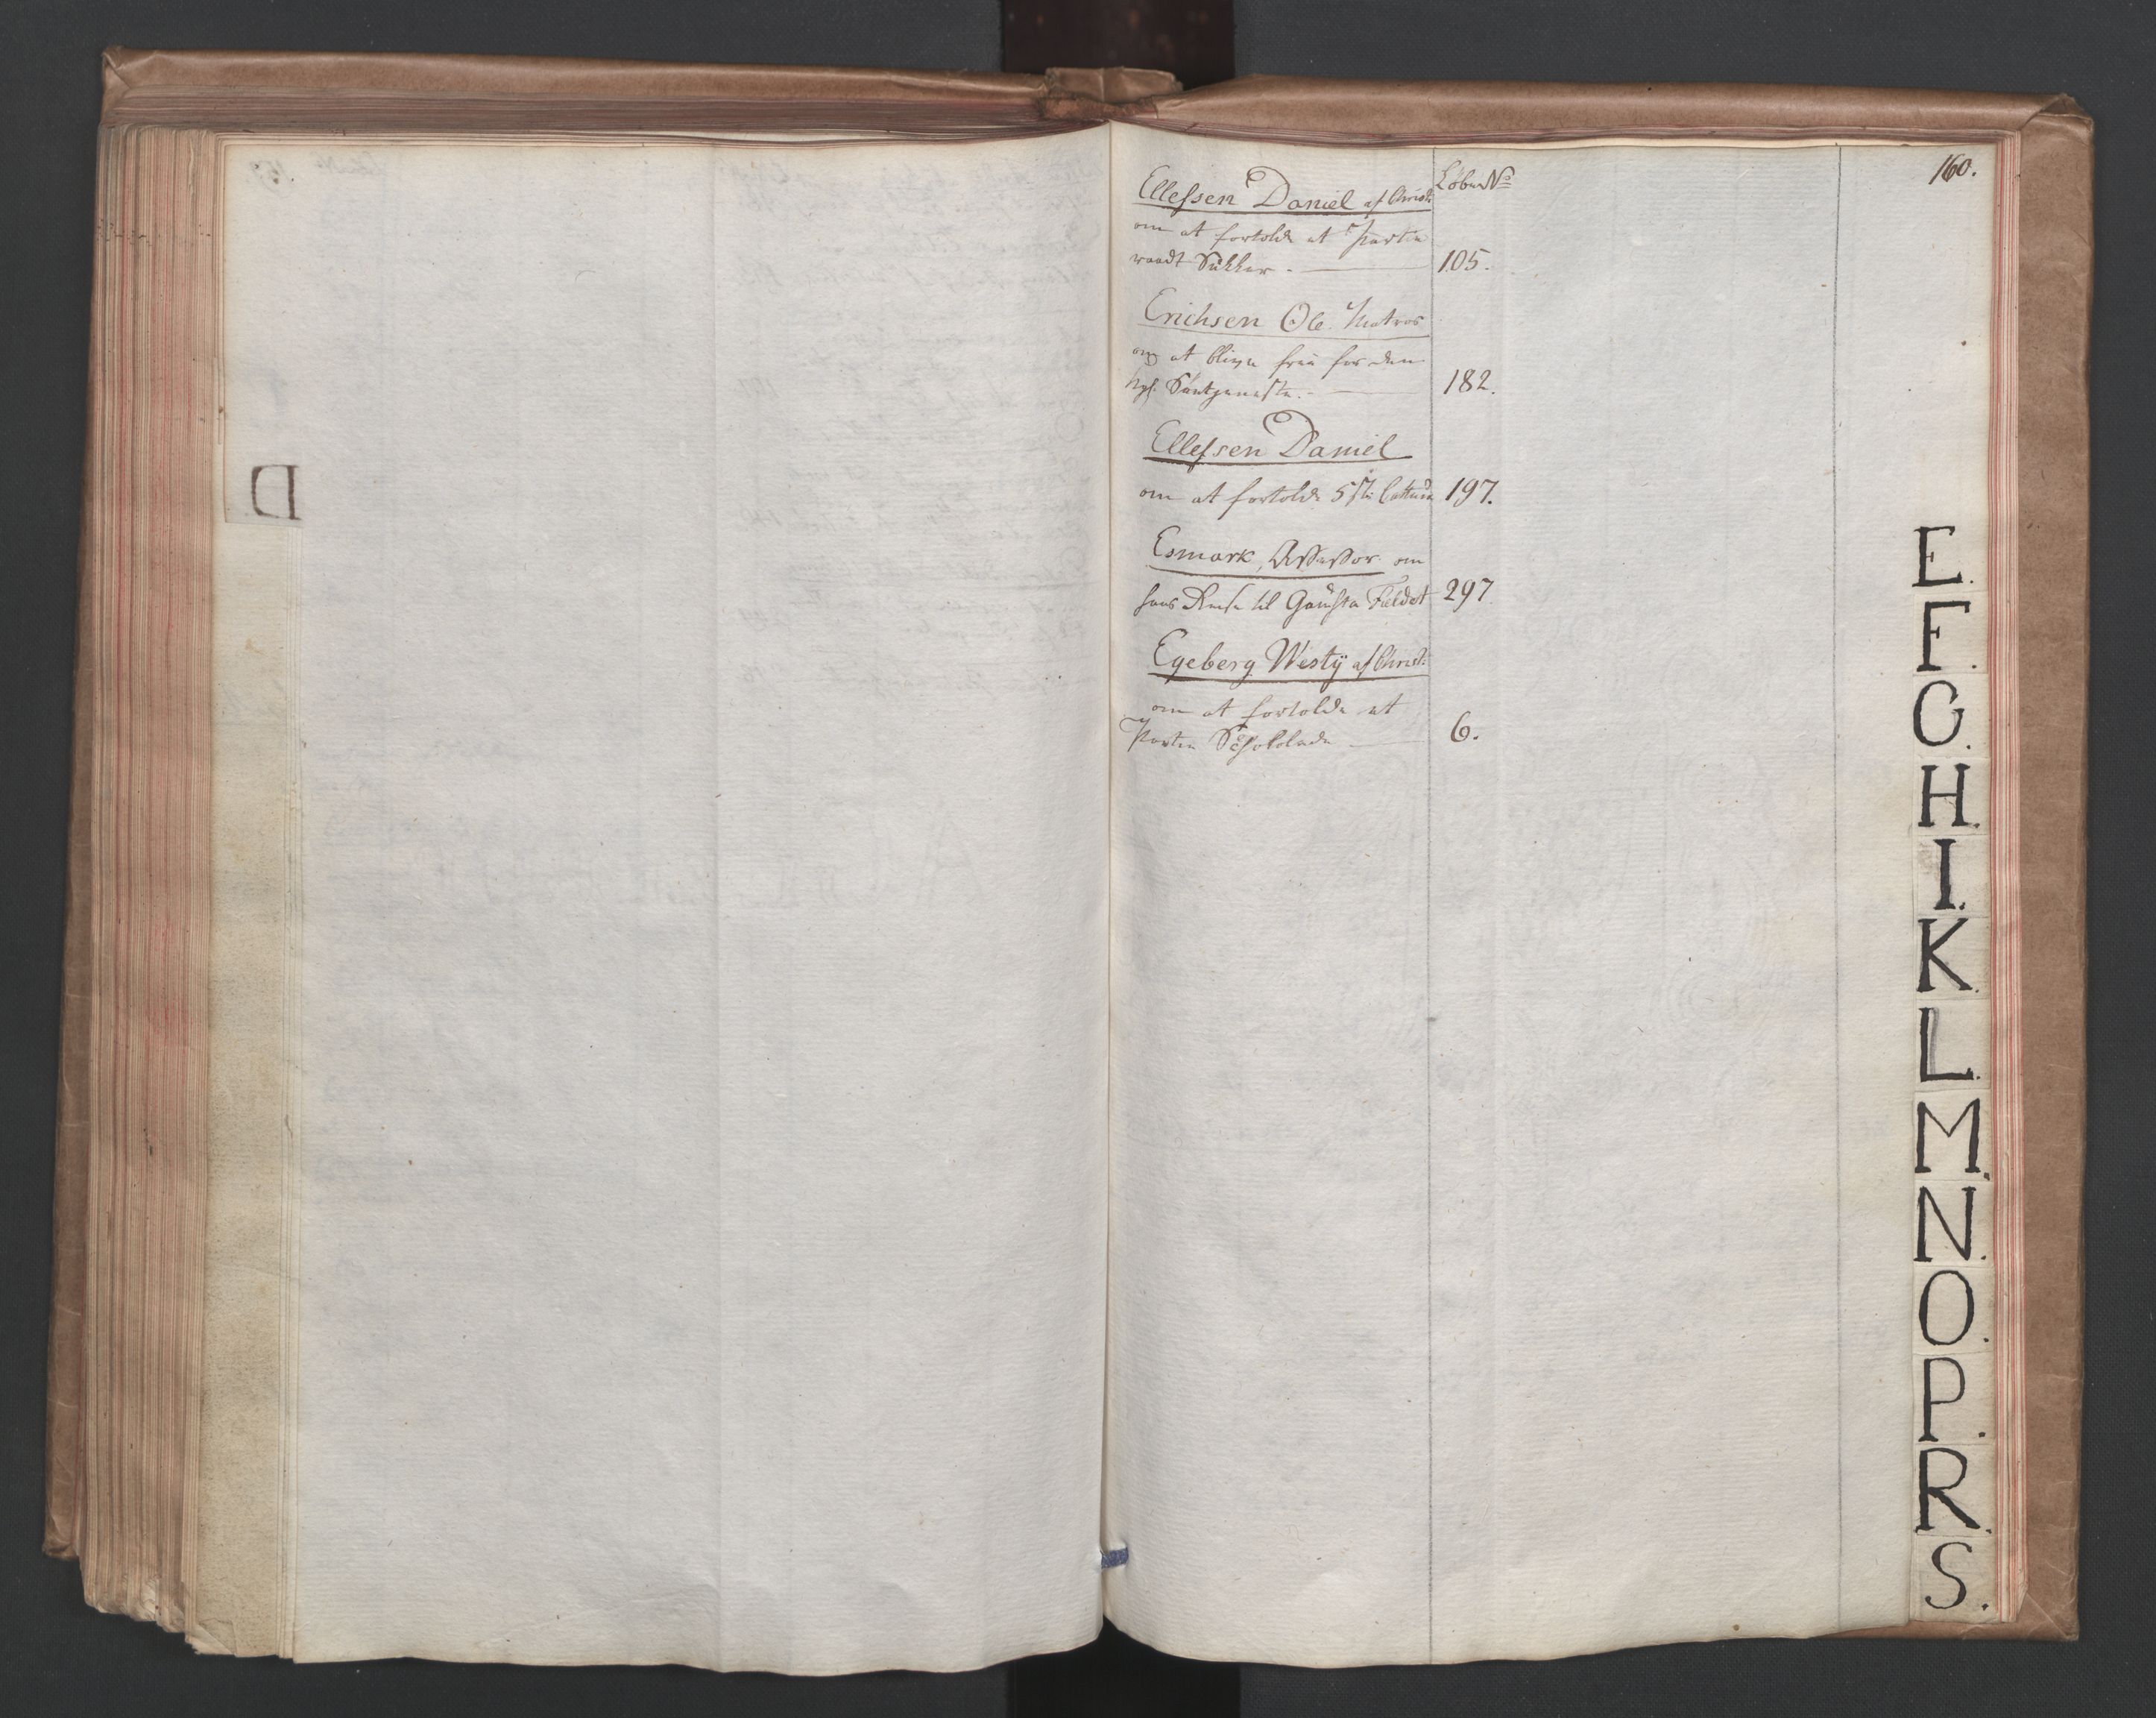 160.
Løbe No
Ellefsen Daniel af Christ:
om at fortolde et Partie
raadt Sukker. 105.
Erichsen Ole. Matros
om at blive frie for den
kgl. Søetjeneste. 182.
Ellefsen Daniel
om at fortolde 5 st: Cattun 197.
Esmark, Assessor om
hans Reise til Gausta Fieldet 297
Egeberg Westÿ af Christ:
om at fortolde et
Partie Schokolade 6.
D
E.
F.
G.
H.
I.
K.
L.
M.
N.
O.
P.
R.
S.